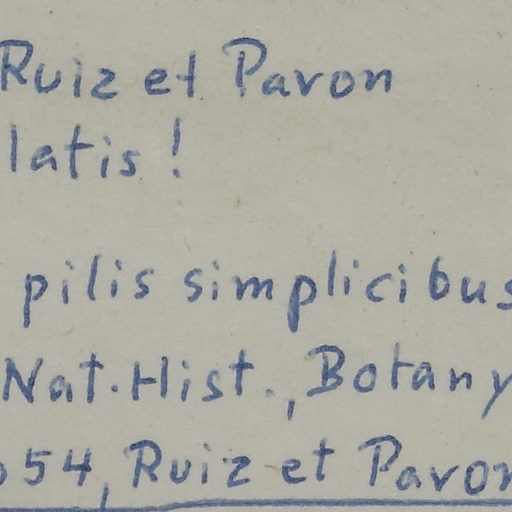 Ruiz et Pavon
latis!
pilis simplicibus
Nat. Hist., Botany
54, Ruiz et Pavon